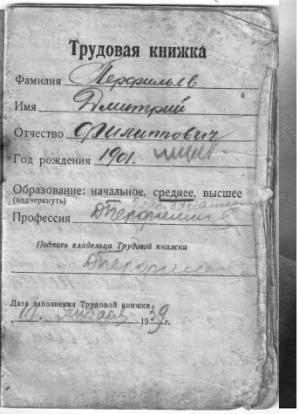 Трудовая книжка
Фамилия Перфильев
Имя Дмитрий
Отчество Филиппович
Год рождения 1901.
Образование: начальное, среднее, высшее
(подчеркнуть)
Профессия
Подпись владельца Трудовой книжки
Дата заполнения Трудовой книжки
1939 г.